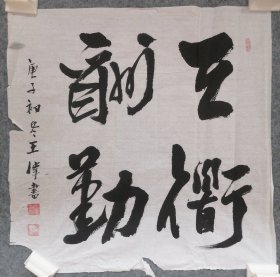 天衜
酬勤
庚子初冬王偉書